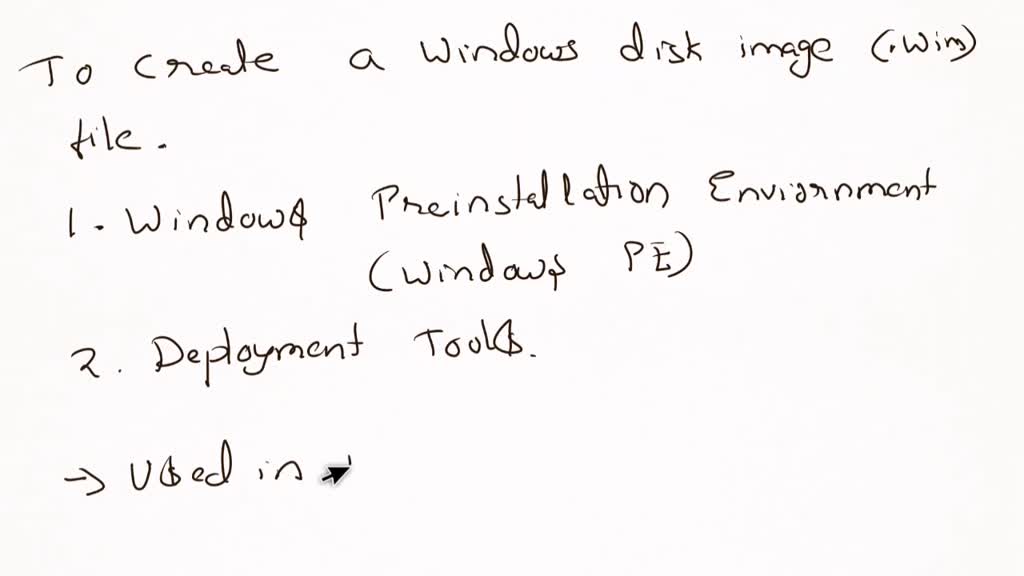 To create a Windows disk image (.Wim)
file.
1. Windows Preinstallation Enviornment
(Windows PE)
2. Deployment Tools.
→ Used in